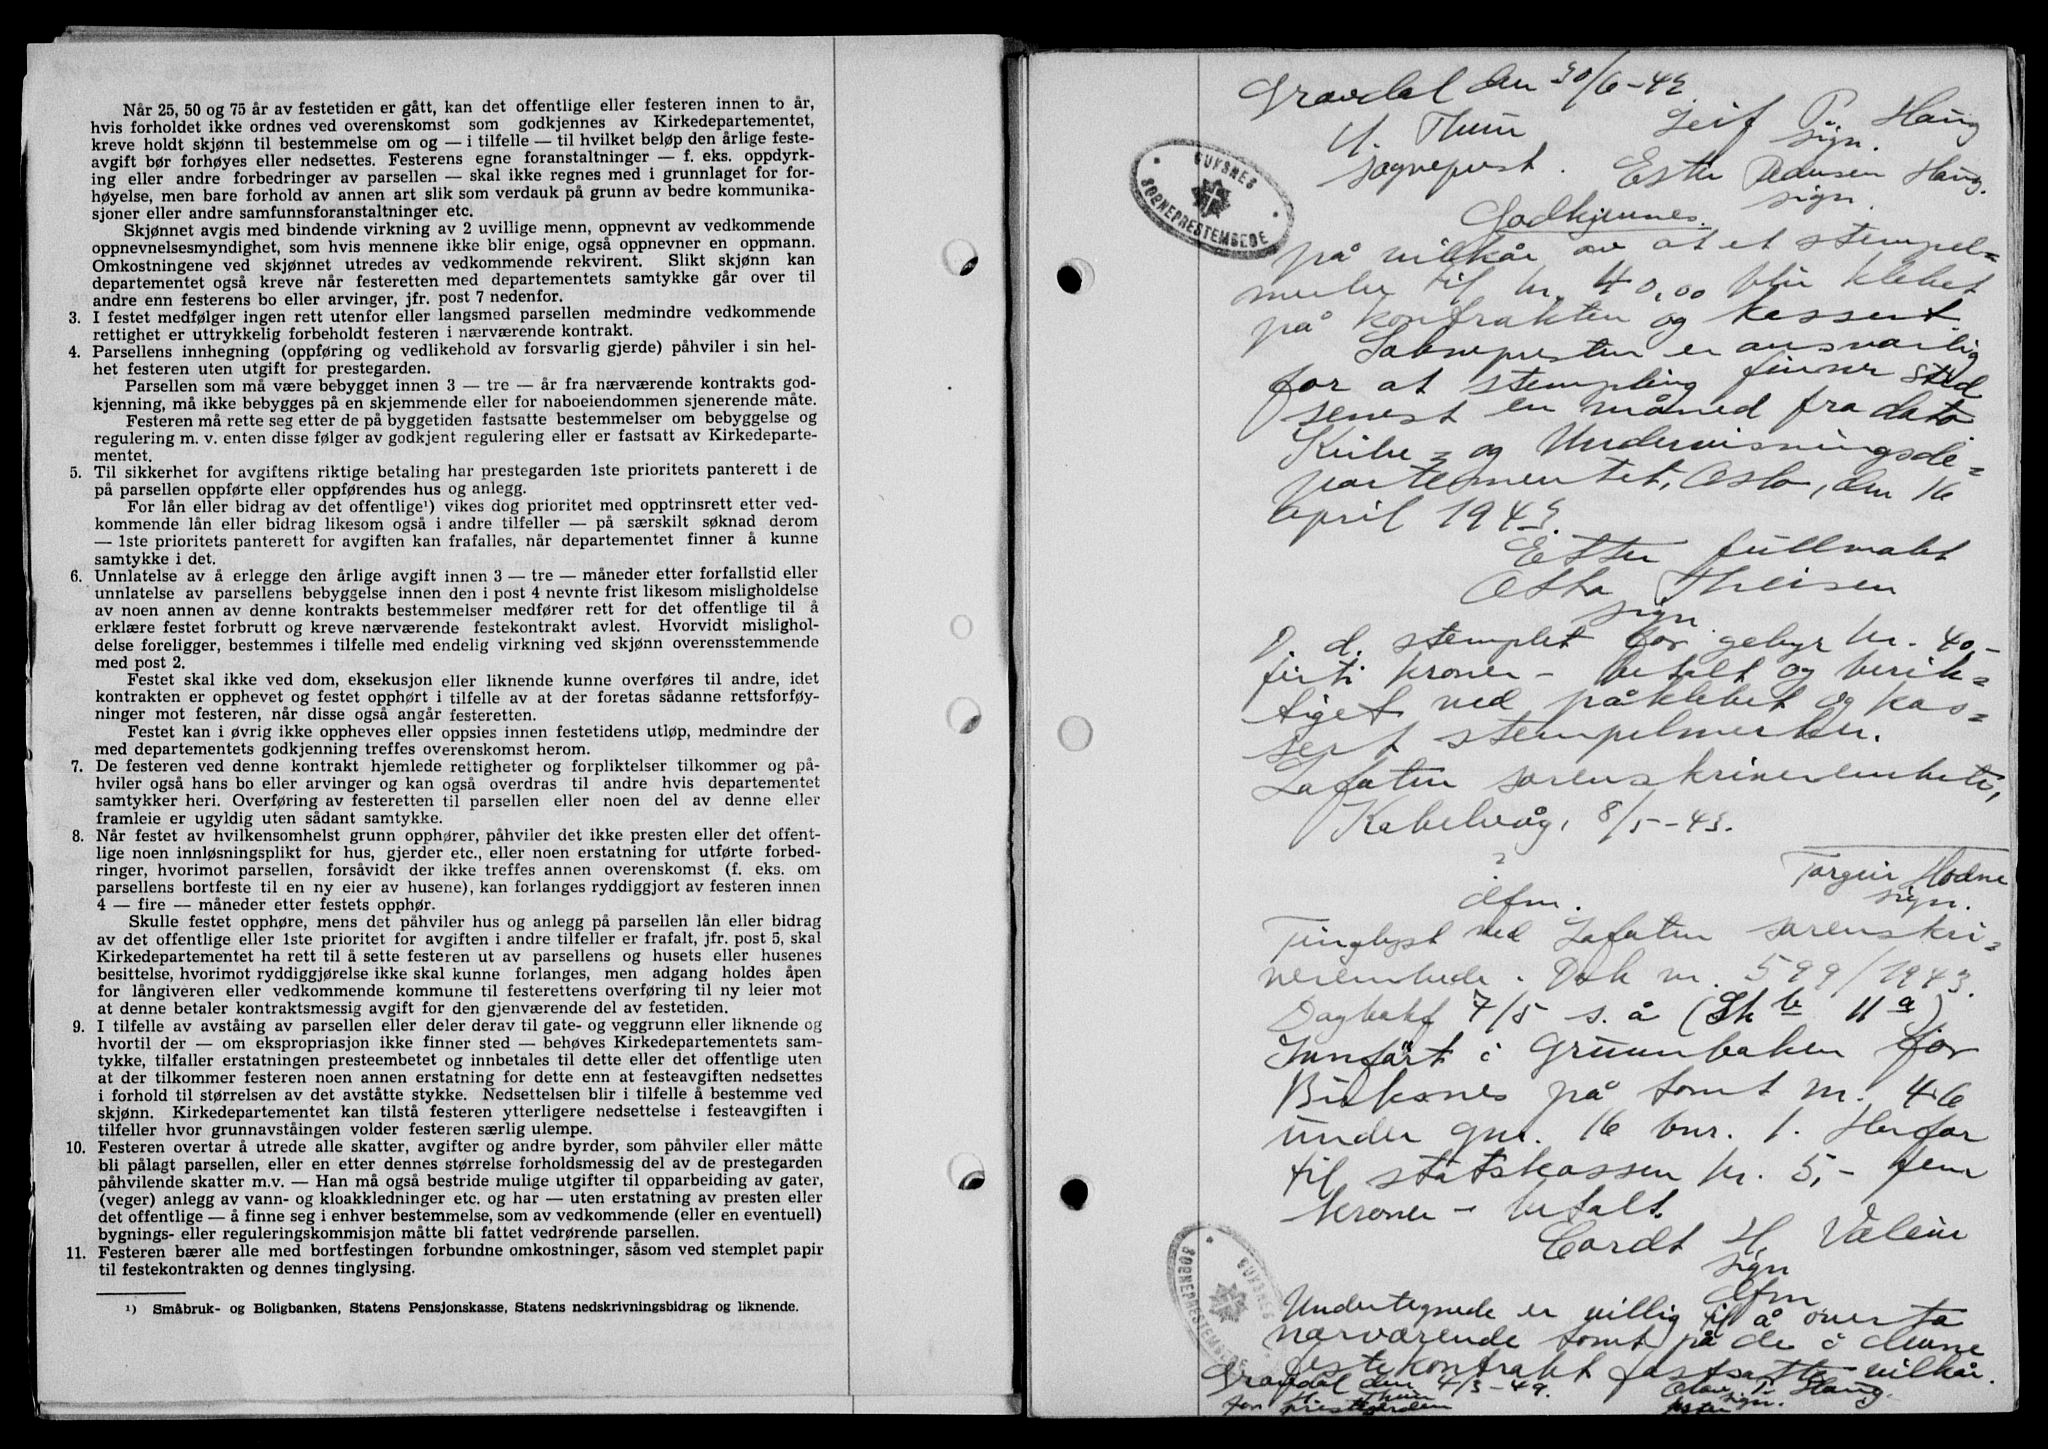 Når 25, 50 og 75 år av festetiden er gått, kan det offentlige eller festeren innen to år,
hvis forholdet ikke ordnes ved overenskomst som godkjennes av Kirkedepartementet,
kreve holdt skjønn til bestemmelse om og — i tilfelle — til hvilket beløp den årlige feste-
avgift bør forhøyes eller nedsettes. Festerens egne foranstaltninger — f. eks. oppdyrk-
ing eller andre forbedringer av parsellen — skal ikke regnes med i grunnlaget for for-
høyelse, men bare forhold av annen art slik som verdauk på grunn av bedre kommunika-
sjoner eller andre samfunnsforanstaltninger etc.
Skjønnet avgis med bindende virkning av 2 uvillige menn, oppnevnt av vedkommende
oppnevnelsesmyndighet, som hvis mennene ikke blir enige, også oppnevner en oppmann.
Omkostningene ved skjønnet utredes av vedkommende rekvirent. Slikt skjønn kan
departementet også kreve når festeretten med departementets samtykke går over til
andre enn festerens bo eller arvinger, jfr. post 7 nedenfor.
3. I festet medfølger ingen rett utenfor eller langsmed parsellen medmindre vedkommende
rettighet er uttrykkelig forbeholdt festeren i nærværende kontrakt.
4. Parsellens innhegning (oppføring og vedlikehold av forsvarlig gjerde) påhviler i sin hel-
het festeren uten utgift for prestegarden.
Parsellen som må være bebygget innen 3 — tre — år fra nærværende kontrakts god-
kjenning, må ikke bebygges på en skjemmende eller for naboeiendommen sjenerende måte.
Festeren må rette seg etter de på byggetiden fastsatte bestemmelser om bebyggelse og
regulering m. v. enten disse følger av godkjent regulering eller er fastsatt av Kirkedeparte-
mentet.
5. Til sikkerhet for avgiftens riktige betaling har prestegarden 1ste prioritets panterett i de
på parsellen oppførte eller oppførendes hus og anlegg.
For lån eller bidrag av det offentlige¹) vikes dog prioritet med opptrinsrett etter ved-
kommende lån eller bidrag likesom også i andre tilfeller — på særskilt søknad derom
— 1ste prioritets panterett for avgiften kan frafalles, når departementet finner å kunne
samtykke i det.
6. Unnlatelse av å erlegge den årlige avgift innen 3 — tre — måneder etter forfallstid eller
unnlatelse av parsellens bebyggelse innen den i post 4 nevnte frist likesom misligholdelse
av noen annen av denne kontrakts bestemmelser medfører rett for det offentlige til å
erklære festet forbrutt og kreve nærværende festekontrakt avlest. Hvorvidt mislighol-
delse foreligger, bestemmes i tilfelle med endelig virkning ved skjønn overensstemmende
med post 2.
Festet skal ikke ved dom, eksekusjon eller liknende kunne overføres til andre, idet
kontrakten er opphevet og festet opphørt i tilfelle av at der foretas sådanne rettsforføy-
ninger mot festeren, når disse også angår festeretten.
Festet kan i øvrig ikke oppheves eller oppsies innen festetidens utløp, medmindre der
med departementets godkjenning treffes overenskomst herom.
7. De festeren ved denne kontrakt hjemlede rettigheter og forpliktelser tilkommer og på-
hviler også hans bo eller arvinger og kan også overdras til andre hvis departementet
samtykker heri. Overføring av festeretten til parsellen eller noen del av denne eller
framleie er ugyldig uten sådant samtykke.
8. Når festet av hvilkensomhelst grunn opphører, påhviler det ikke presten eller det offent-
lige noen innløsningsplikt for hus, gjerder etc., eller noen erstatning for utførte forbed-
ringer, hvorimot parsellen, forsåvidt der ikke treffes annen overenskomst (f. eks. om
parsellens bortfeste til en ny eier av husene), kan forlanges ryddiggjort av festeren innen
4 — fire — måneder etter festets opphør.
Skulle festet opphøre, mens det påhviler hus og anlegg på parsellen lån eller bidrag
av det offentlige eller 1ste prioritet for avgiften i andre tilfeller er frafalt, jfr. post 5, skal
Kirkedepartementet ha rett til å sette festeren ut av parsellens og husets eller husenes
besittelse, hvorimot ryddiggjørelse ikke skal kunne forlanges, men adgang holdes åpen
for långiveren eller vedkommende kommune til festerettens overføring til ny leier mot
at denne betaler kontraktsmessig avgift for den gjenværende del av festetiden.
9. I tilfelle av avståing av parsellen eller deler derav til gate- og veggrunn eller liknende og
hvortil der — om ekspropriasjon ikke finner sted — behøves Kirkedepartementets sam-
tykke, tilfaller erstatningen presteembetet og innbetales til dette eller det offentlige uten
at der tilkommer festeren noen annen erstatning for dette enn at festeavgiften nedsettes
i forhold til størrelsen av det avståtte stykke. Nedsettelsen blir i tilfelle å bestemme ved
skjønn. Kirkedepartementet kan tilstå festeren ytterligere nedsettelse i festeavgiften i
tilfeller hvor grunnavståingen volder festeren særlig ulempe.
10. Festeren overtar å utrede alle skatter, avgifter og andre byrder, som påhviler eller måtte
bli pålagt parsellen, eller en etter dennes størrelse forholdsmessig del av de prestegarden
påhvilende skatter m.v. — Han må også bestride mulige utgifter til opparbeiding av gater,
(veger) anlegg av vann- og kloakkledninger etc. og har — uten erstatning av presten eller
det offentlige — å finne seg i enhver bestemmelse, som av vedkommende (eller en eventuell)
bygnings- eller reguleringskommisjon måtte bli fattet vedrørende parsellen.
11. Festeren bærer alle med bortfestingen forbundne omkostninger, såsom ved stemplet papir
til festekontrakten og dennes tinglysing.
¹) Småbruk- og Boligbanken, Statens Pensjonskasse, Statens nedskrivningsbidrag og liknende.
Gravdal den 30/6-42
Leif P. Haug
sign.
H. Thun
sogneprest. Ester Pedersen Haug.
sign.
BUKSNES
SOGNEPRESTEMBEDE
Godkjennes.
på vilkår av at et stempel=
merke til kr. 40,00 blir klebet
på kontrakten og kassert.
Soknepresten er ansvarlig
for at stempling finner sted
senest en måned fra dato
Kirke- og Undervisningsde=
partementet, Oslo, den 16
april 1943.
Etter fullmakt
Otto Theisen
sign.
D. d. stemplet for gebyr kr. 40,-
førti kroner - betalt og berik=
tiget ved påklebet og kas=
sert stempelmerker.
Lofoten sorenskriverembete,
Kabelvåg, 8/5-43.
Torgeir Hodne
sign.
dfm.
Tinglyst ved Lofoten sorenskri=
verembede. Dok nr. 599/1943.
Dagbokf 7/5 s. å (Sk b 11a)
Innført i Grunnboken for
Buksnes på tomt nr. 46
under gnr. 16 bnr. 1. Herfor
til statskassen kr. 5,- fem
kroner - betalt.
Cordt H. Valeur
sign
dfm.
BUKSNES
SOGNEPRESTEMBEDE
Undertegnede er villig til å overta
nærværende tomt på de i denne
festekontrakt fastsatte vilkår.
Gravdal den 4/3-49.
H. Thun
for prestegården
Olav P. Haug.
sign.
fester